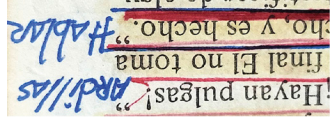 ¡Hayan pulgas!” ARdillAS
final El no toma
cho, y es hecho.” HAblAR